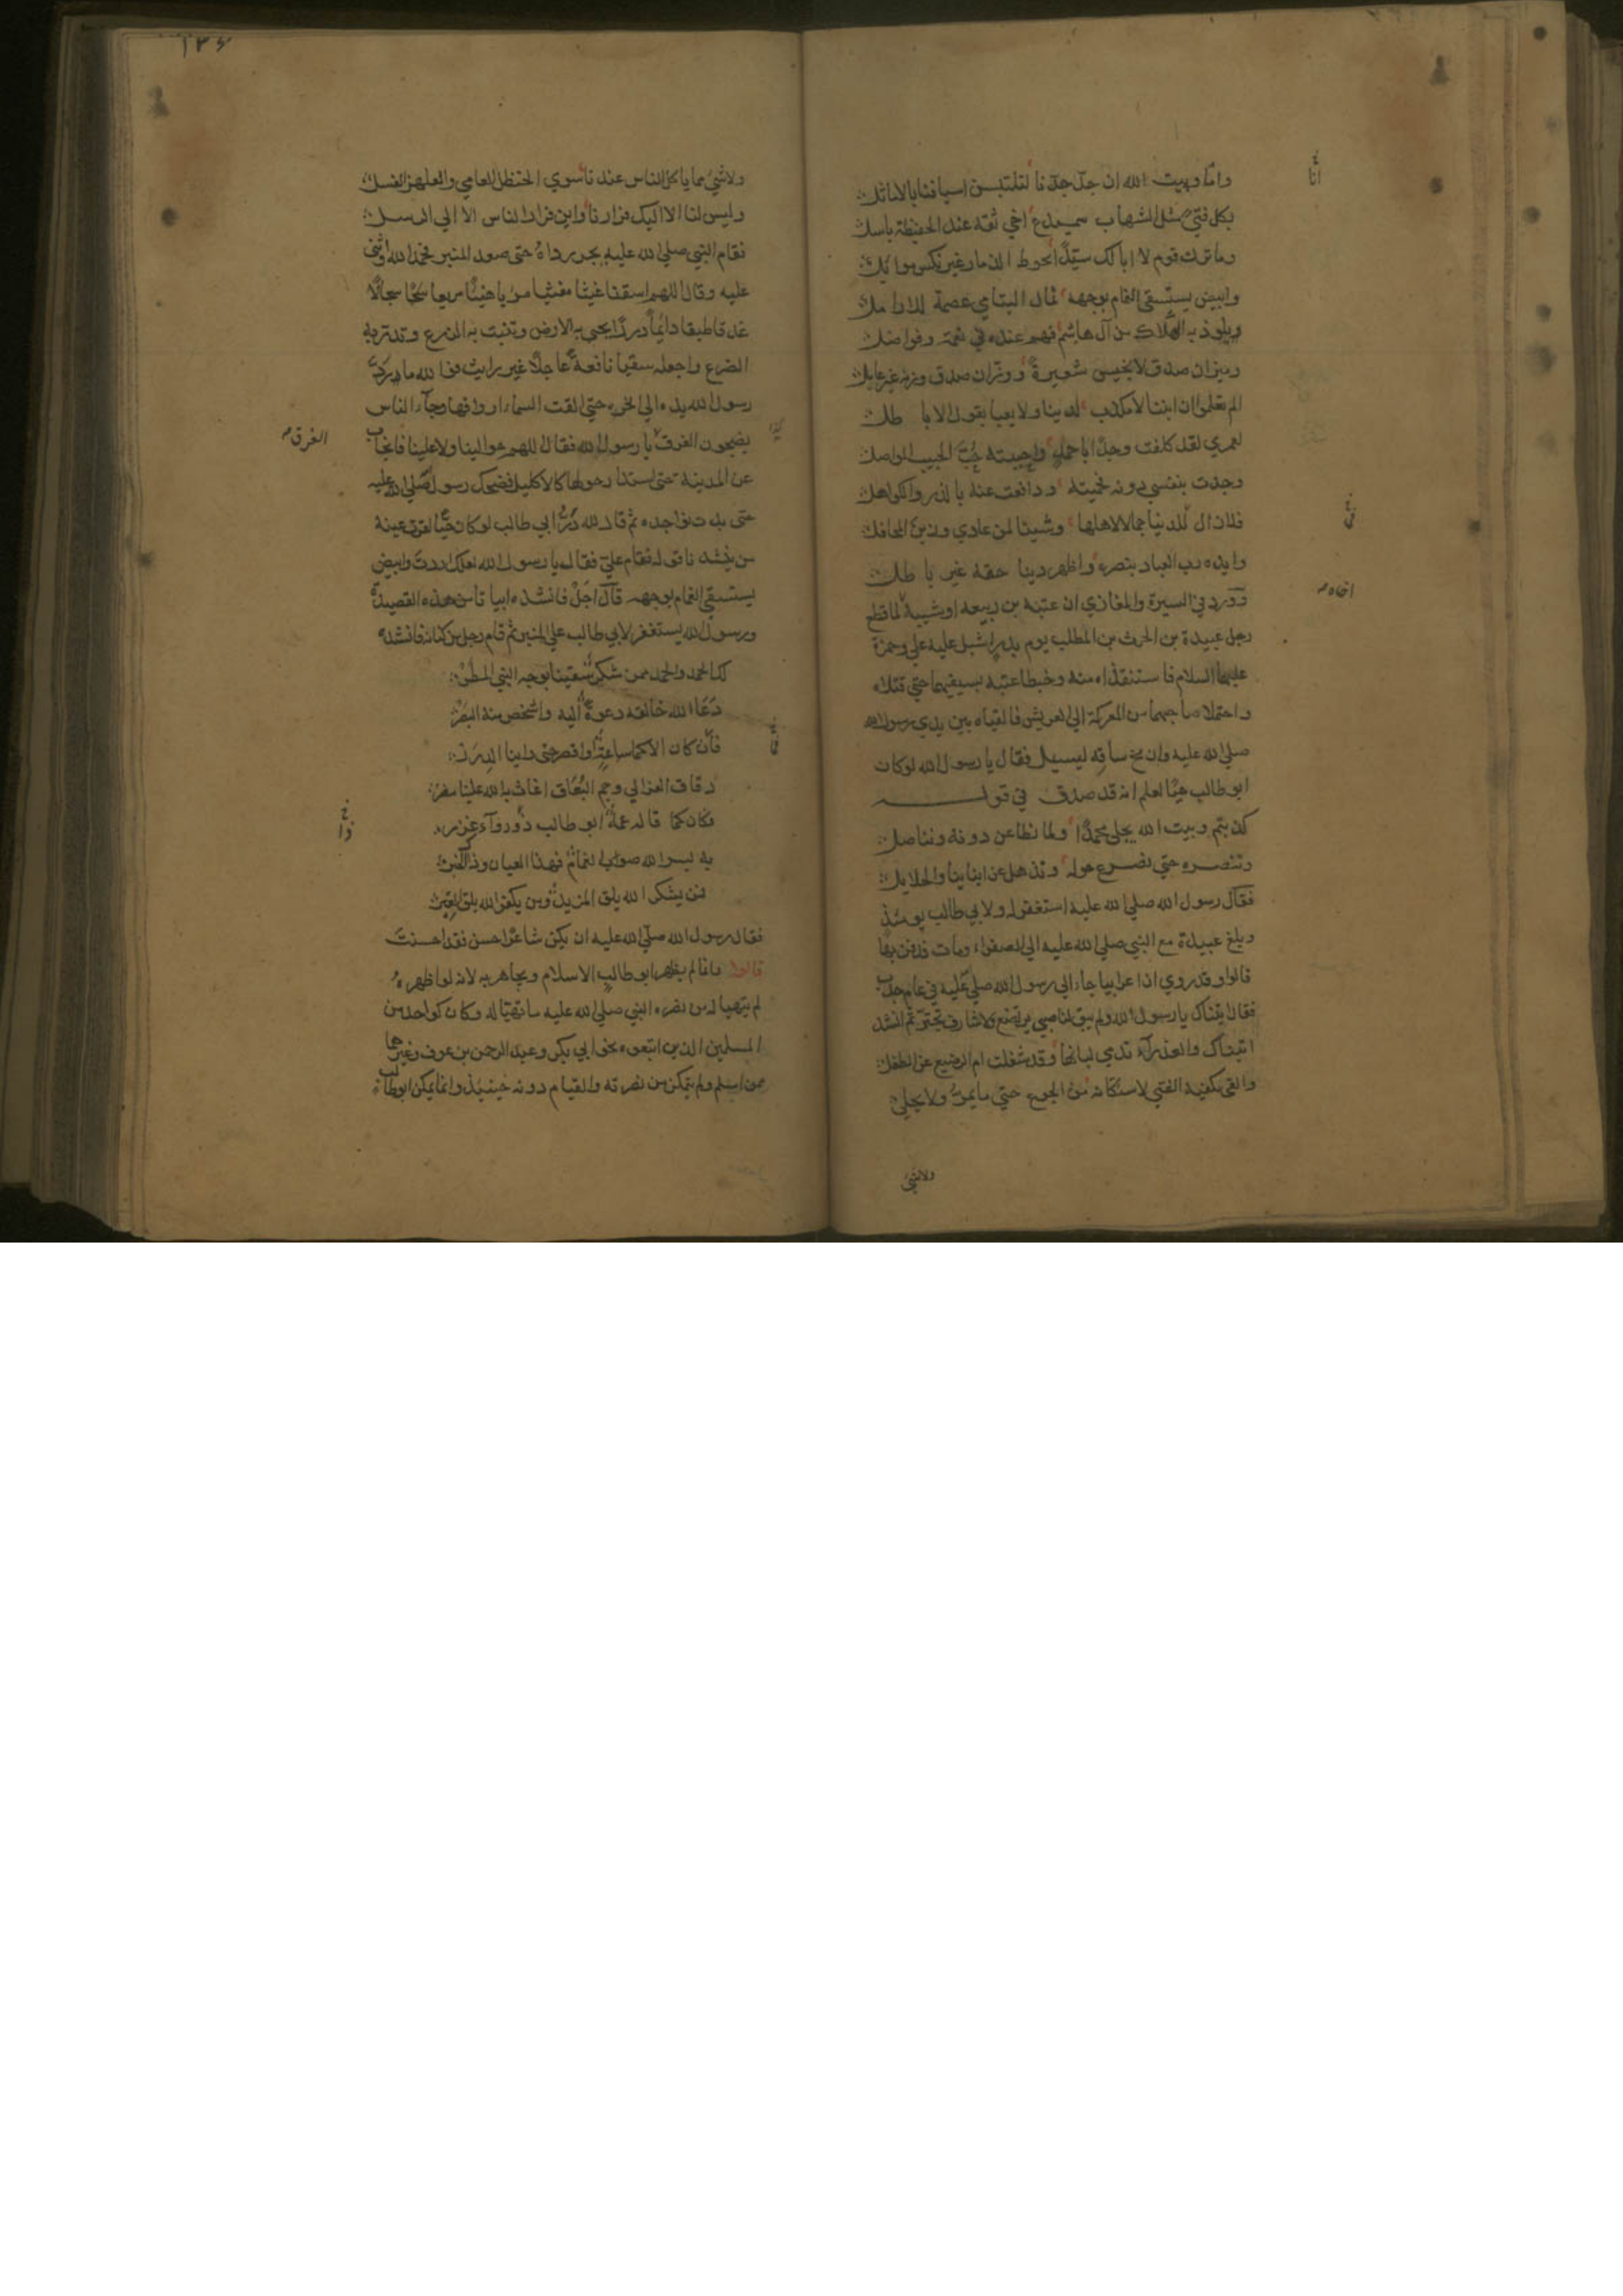 وانا وبيت الله ان جدّ جدّنا لتلتبسن اسيافنا بالاماثل
بكل فتى مثل الشهاب سميدع اخي ثقة عند الحفيظة باسل
وما ترك قوم لا ابا لك سيّدا يحوط الذمار غير نكس مواكل
وابيض يستسقى الغمام بوجهه ثمال اليتامي عصمة للارامل
ويلوذ به الهلاك من آل هاشم فهم عنده في نعمة وفواضل
وميزان صدق لا يخيس شعيرة ووزّان صدق وزنه غير عايل
الم تعلموا ان ابننا لا مكذب لدينا ولا يعبا بقول الاباطل
لعمري لقد كلفت وجدا باحمد واحببته حبّ الحبيب المواصل
وجدت بنفسي دونه فحميته ودافعت عنه بالذرى والكواهل
فلا زال للدنيا جمالا لاهلها وشينا لمن عادي وزين المحافل
وايده رب العباد بنصره واظهر دينا حقه غير باطل
وورد في السيرة والمغازي ان عتبة بن ربيعة او شيبة لما قطع
رجل عبيدة بن الحرث بن المطلب يوم بدر اشبل عليه علي وحمزة
عليهما السلام فاستنقذاه منه وخبطا عتبة بسيفيهما حتي قتلاه
واحتملا صاحبهما من المعركة الي العريش فالقياه بين يدي رسول الله
صلي الله عليه وان مخ ساقه ليسيل فقال يا رسول الله لو كان
ابو طالب حيّا لعلم انه قد صدق في قوله
كذبتم وبيت الله يخلي محمدا ولما نطاعن دونه ونناضل
وننصره حتي نصرع حوله ونذهل عن ابناينا والحلايل
فقال رسول الله صلي الله عليه استغفر له ولابي طالب يومئذ
وبلغ عبيدة مع النبي صلي الله عليه الي الصفراء ومات فدفن بها
قالوا وقد روي ان اعرابيا جاء الي رسول الله صلي عليه في عام جدب
فقال اتيناك يا رسول الله ولم يبق لنا صبي يرتضع ولا شارف تجتر ثم انشد
اتيناك والعذراء تدمي لبانها وقد شغلت ام الرضيع عن الطفل
والقى بكفيه الفتي لاستكانة من الجوع حتي ما يمر ولا يحلي
ولا شئ
انا
في
۱۳۶
ولا شئ مما ياكل الناس عندنا سوي الحنظل العامي والعلهز الفسل
وليس لنا الا اليك فرارنا واين فرار الناس الا الي الرسل
فقام النبي صلي الله عليه يجر رداه حتى صعد المنبر فحمد الله واثنى
عليه وقال اللهم اسقنا غيثا مغيثا مريا هنيئا مريعا سحّا سجالا
غدقا طبقا دائما دررا يحيي به الارض وتنبت به الزرع وتدر به
الضرع واجعله سقيا نافعة عاجلا غير رايث فوالله ما رد
رسول الله يده الي نحره حتى القت السماء ارواقها وجاء الناس
يضجون الغرق يا رسول الله فقال اللهم حوالينا ولا علينا فانجاب
عن المدينة حتى استدار حولها كالاكليل فضحك رسول الله صلي عليه
حتى بدت نواجذه ثم قال لله درّ ابي طالب لو كان حيّا لقرت عينه
من ينشدنا قوله فقام علي فقال يا رسول الله لعلك اردت وابيض
يستسقي الغمام بوجهه قال اجل فانشده ابياتا من هذه القصيدة
ورسول الله يستغفر لابي طالب علي المنبر ثم قام رجل من كنانة فانشده
لك الحمد والحمد ممن شكر سقينا بوجه النبي المطر
دعا الله خالقه دعوة اليه واشخص منه البصر
فان كان الا كما ساعة او اقصر حتى راينا الدرر
دقاق العزالي وجم البعاق اغاث به الله عليا مضر
فكان كما قاله عمه ابو طالب ذو رواء غزر
به يسر الله صوب الغمام فهذا العيان وذاك الخبر
فمن يشكر الله يلق المزيد ومن يكفر الله يلق الغير
فقال رسول الله صلي الله عليه ان يكن شاعرا احسن فقد احسنت
قالوا وانما لم يظهر ابو طالب الاسلام ويجاهر به لانه لو اظهره
لم يتهيا له من نصره النبي صلي الله عليه ما تهيّا له وكان كواحد من
المسلمين الذين اتبعوه نحو ابي بكر وعبد الرحمن بن عوف وغيرهما
ممن اسلم ولم يتمكن من نصرته والقيام دونه حينيذ وانما تمكن ابو طالب
الغرق
في